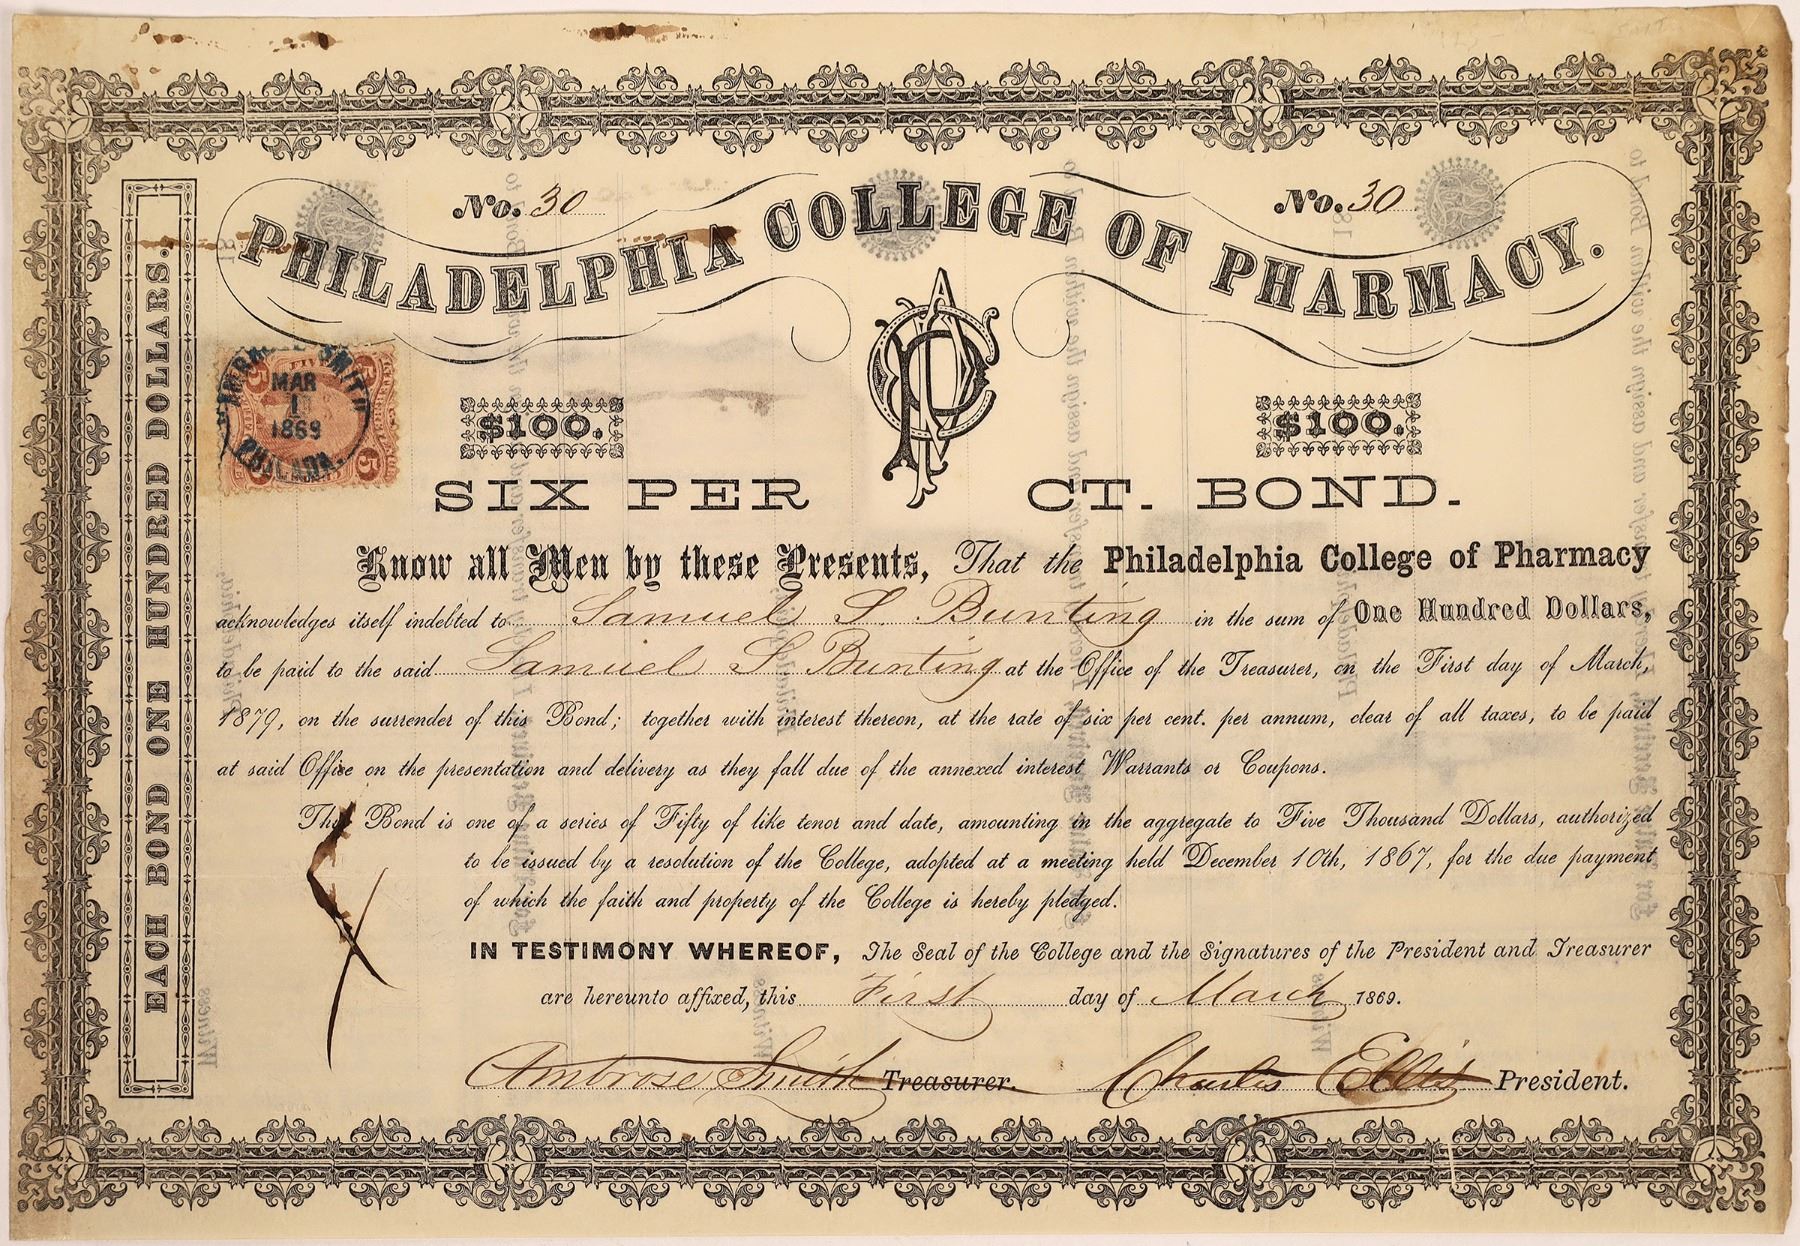 No. 30
No. 30
PHILADELPHIA COLLEGE OF PHARMACY.
EACH BOND ONE HUNDRED DOLLARS.
5 5
MAR
1
1869
PHILADA.
5
PCP
$100.
$100.
SIX PER CT. BOND.
Know all Men by these Presents, That the Philadelphia College of Pharmacy
acknowledges itself indebted to Samuel S. Bunting in the sum of One Hundred Dollars,
to be paid to the said Samuel S Bunting at the Office of the Treasurer, on the First day of March,
1879, on the surrender of this Bond; together with interest thereon, at the rate of six per cent. per annum, clear of all taxes, to be paid
at said Office on the presentation and delivery as they fall due of the annexed interest Warrants or Coupons.
This Bond is one of a series of Fifty of like tenor and date, amounting in the aggregate to Five Thousand Dollars, authorized
to be issued by a resolution of the College, adopted at a meeting held December 10th, 1867, for the due payment
of which the faith and property of the College is hereby pledged.
IN TESTIMONY WHEREOF, The Seal of the College and the Signatures of the President and Treasurer
are hereunto affixed, this First day of March 1869.
Ambrose Smith Treasurer.
Charles Ellis President.